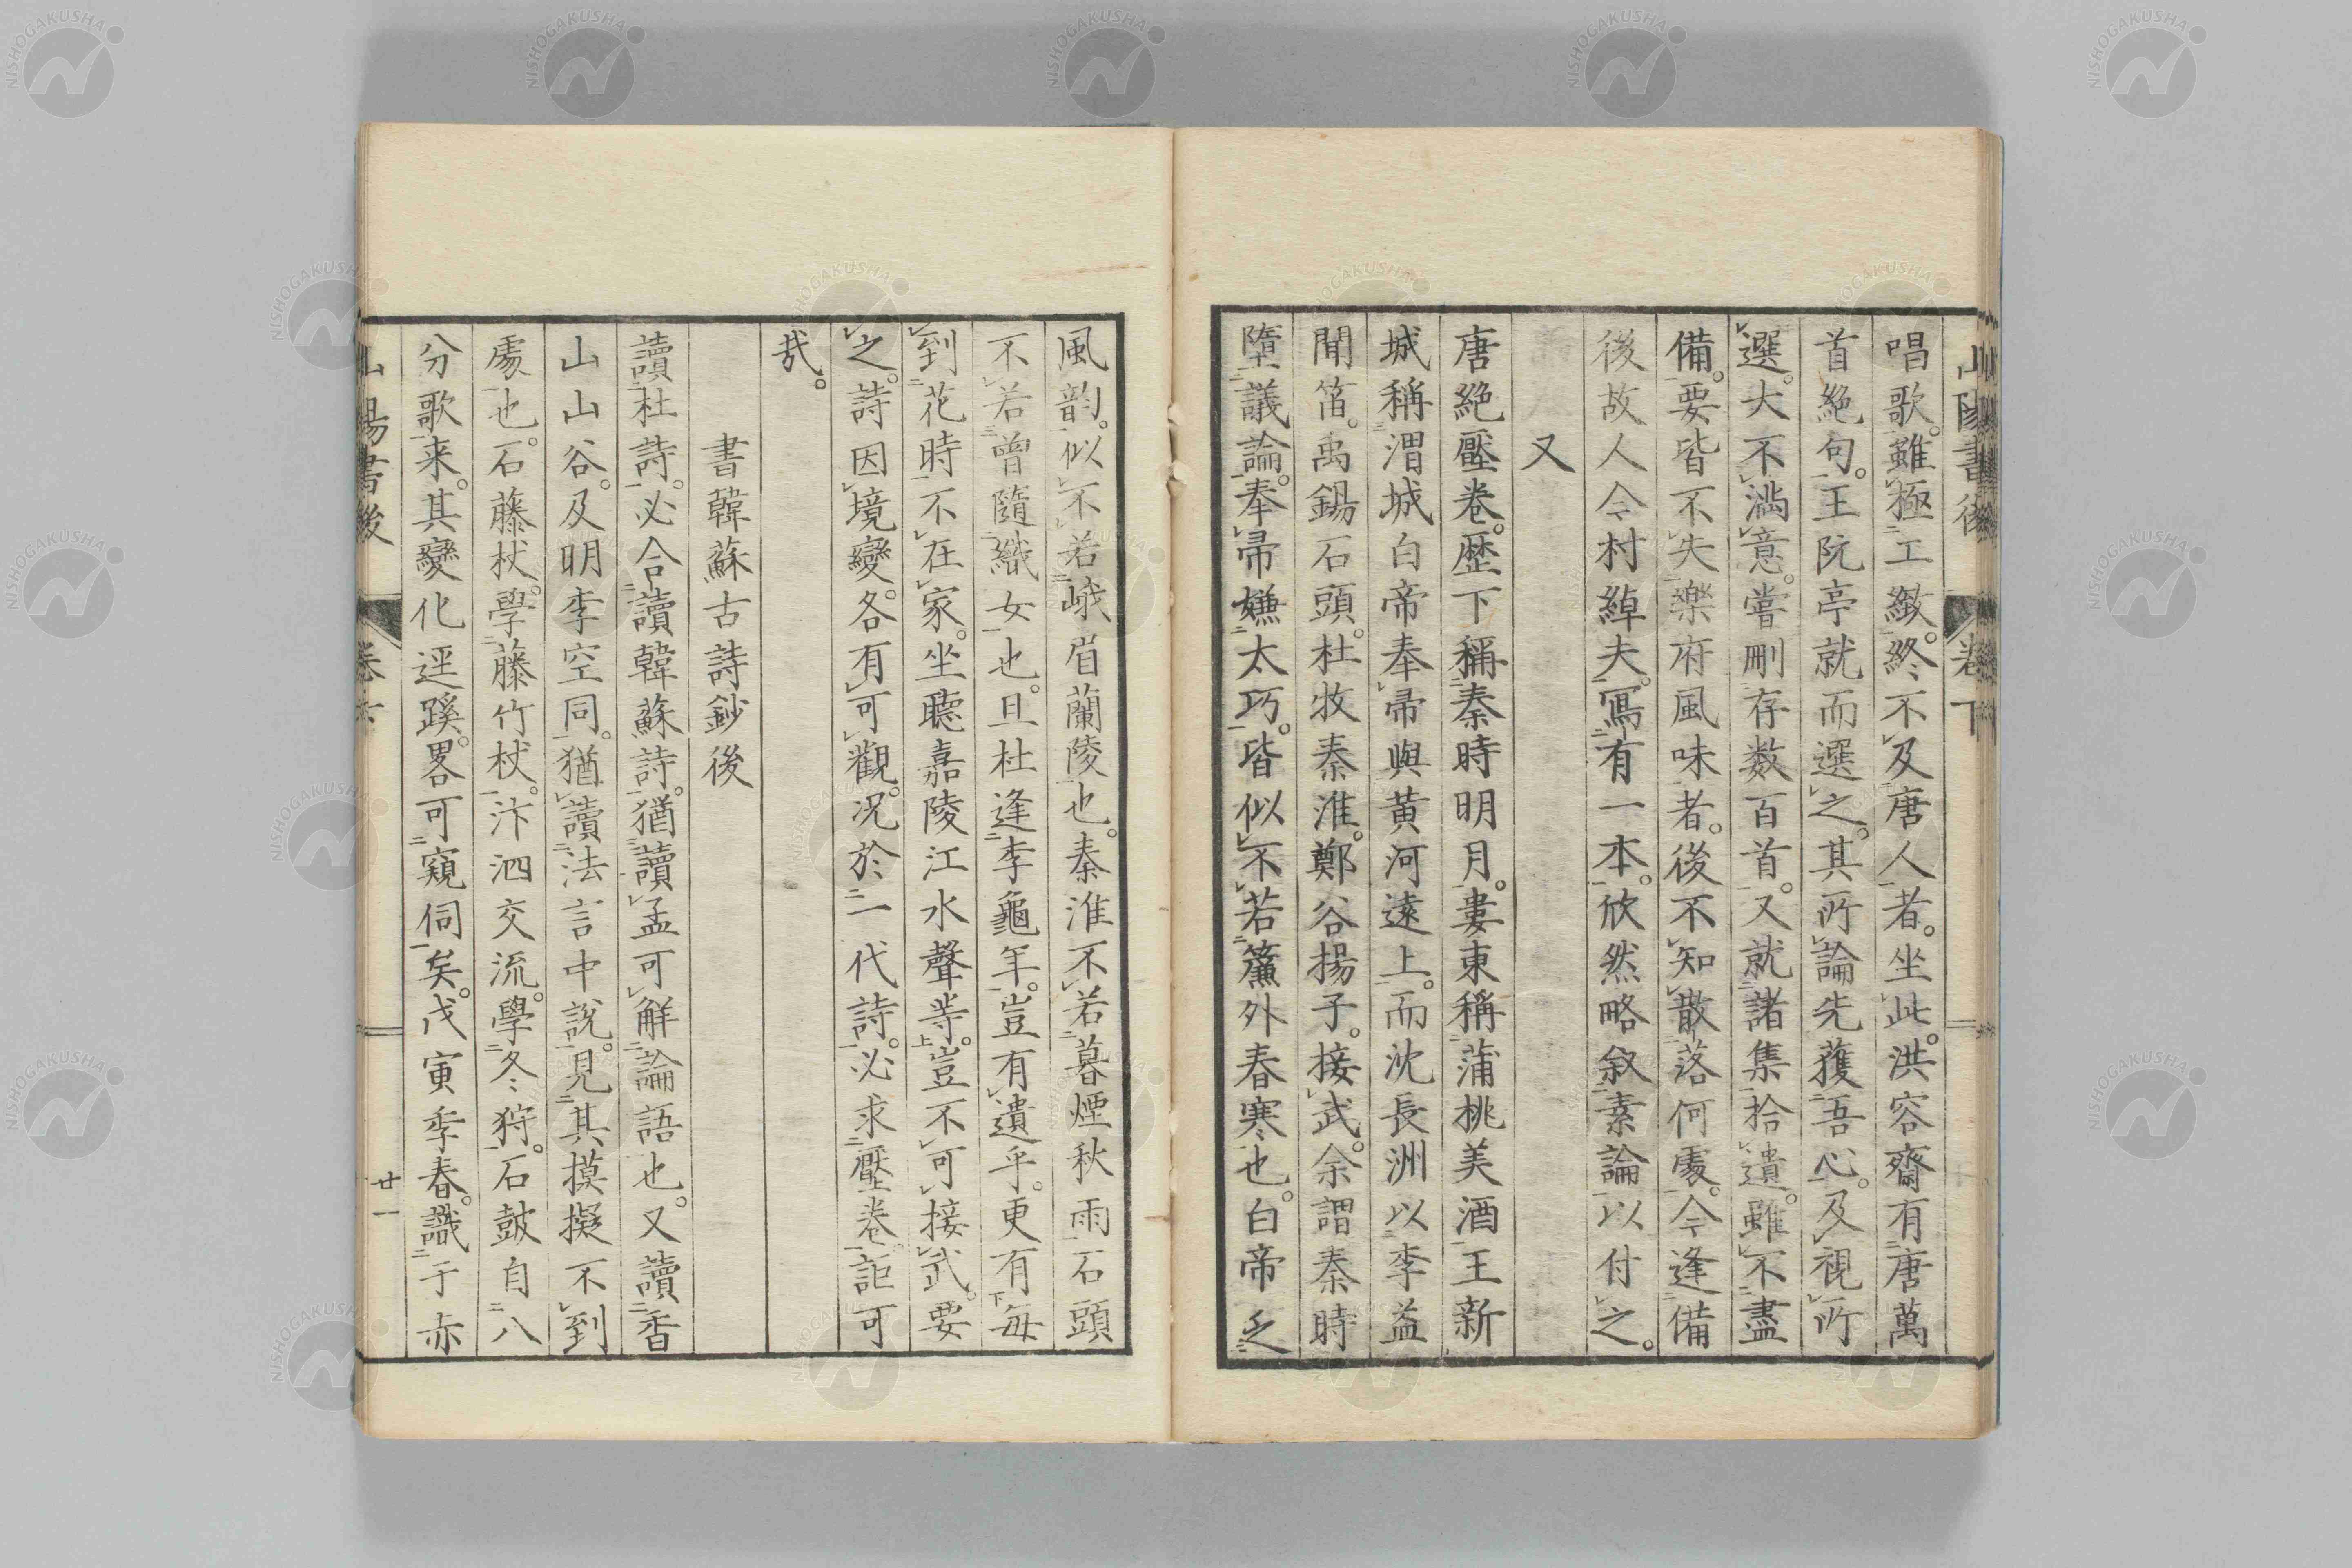 山陽書後 卷下
唱歌。雖極工緻。終不及唐人者。坐此。洪容齋有唐萬
首絕句。王阮亭就而選之。其所論先獲吾心。及視所
選。大不滿意。嘗刪存数百首。又就諸集拾遺。雖不盡
備。要皆不失樂府風味者。後不知散落何處。今逢備
後故人今村綽夫。寫有一本。欣然略敘素論以付之。
又
唐絕壓卷。歷下稱秦時明月。婁東稱蒲桃美酒。王新
城稱渭城白帝奉帚與黃河遠上。而沈長洲以李益
聞笛。禹錫石頭。杜牧秦淮。鄭谷揚子。接武。余謂秦時
墮議論。奉帚嫌太巧。皆似不若簾外春寒也。白帝乏
風韵。似不若峨眉蘭陵也。秦淮不若暮煙秋雨石頭
不若曾隨織女也。且杜逢李龜年。豈有遺乎。更有每
到花時不在家。坐聽嘉陵江水聲等。豈不可接武。要
之。詩因境變。各有可觀。况於一代詩。必求壓卷。詎可
哉。
書韓蘇古詩鈔後
讀杜詩。必合讀韓蘇詩。猶讀孟可解論語也。又讀香
山山谷。及明李空同。猶讀法言中說。見其摸擬不到
處也。石藤杖。學藤竹杖。汴泗交流。學冬狩。石鼓自八
分歌来。其變化逕蹊。畧可窺伺矣。戊寅季春。識于赤
山陽書後 卷下 廿一
NISHOGAKUSHA